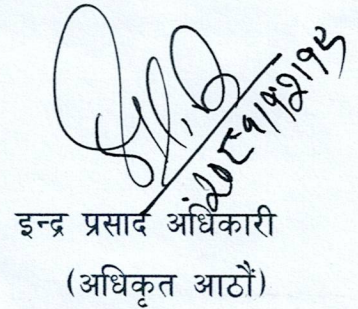 २०८१।१२।१५
इन्द्र प्रसाद अधिकारी
(अधिकृत आठौं)